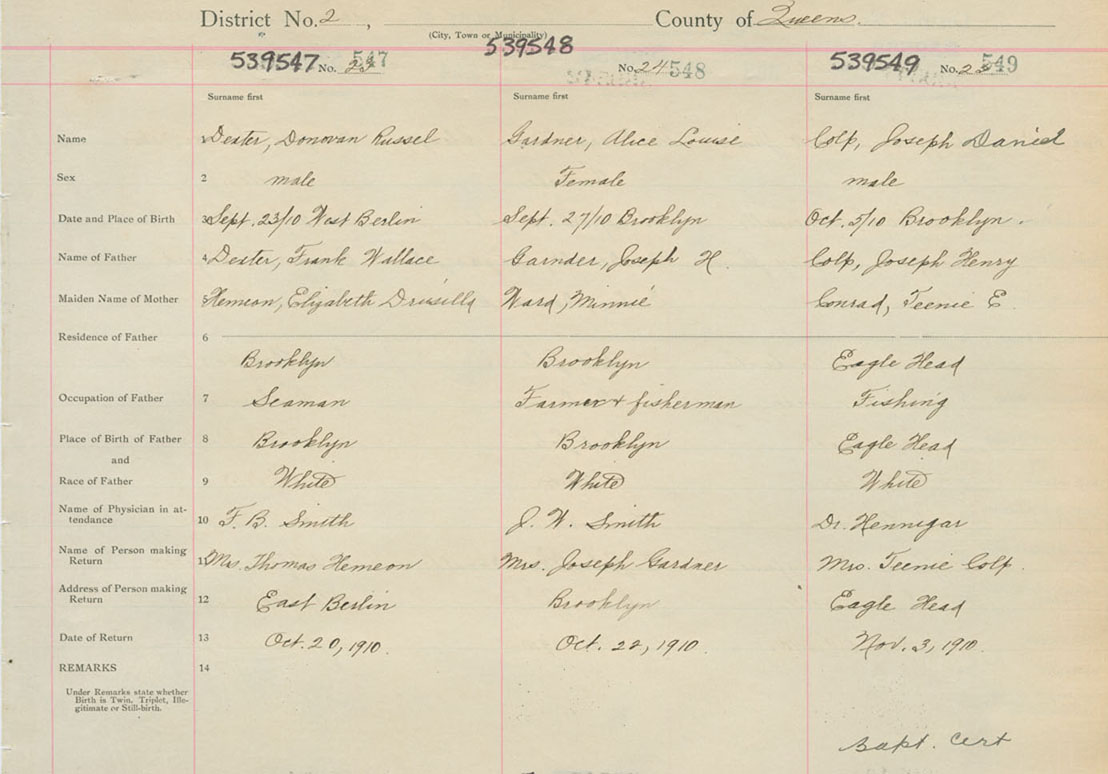 District No. 2 , County of Queens.
(City, Town or Municipality)
539547 No. 547
539548 No. 24 548
539549 No. 549
Surname first Surname first Surname first
Name 1 Dexter, Donovan Russel Gardner, Alice Louise Colp, Joseph Daniel
Sex 2 male Female male
Date and Place of Birth 3 Sept. 23/10 West Berlin Sept. 27/10 Brooklyn Oct. 5/10 Brooklyn.
Name of Father 4 Dexter, Frank Wallace Garnder, Joseph H. Colp, Joseph Henry
Maiden Name of Mother 5 Hemeon, Elizabeth Drusilla Ward, Minnie Conrad, Teenie E.
Residence of Father 6
Brooklyn Brooklyn Eagle Head
Occupation of Father 7 Seaman Farmer & fisherman Fishing
Place of Birth of Father 8 Brooklyn Brooklyn Eagle Head
and
Race of Father 9 White White White
Name of Physician in at-
tendance 10 F. B. Smith J. W. Smith Dr. Hennigar
Name of Person making
Return 11 Mrs. Thomas Hemeon Mrs. Joseph Gardner Mrs. Teenie Colp.
Address of Person making
Return 12 East Berlin Brooklyn Eagle Head
Date of Return 13 Oct. 20, 1910. Oct. 22, 1910. Nov. 3, 1910.
REMARKS 14
Under Remarks state whether
Birth is Twin, Triplet, Ille-
gitimate or Still-birth.
Bapt. Cert